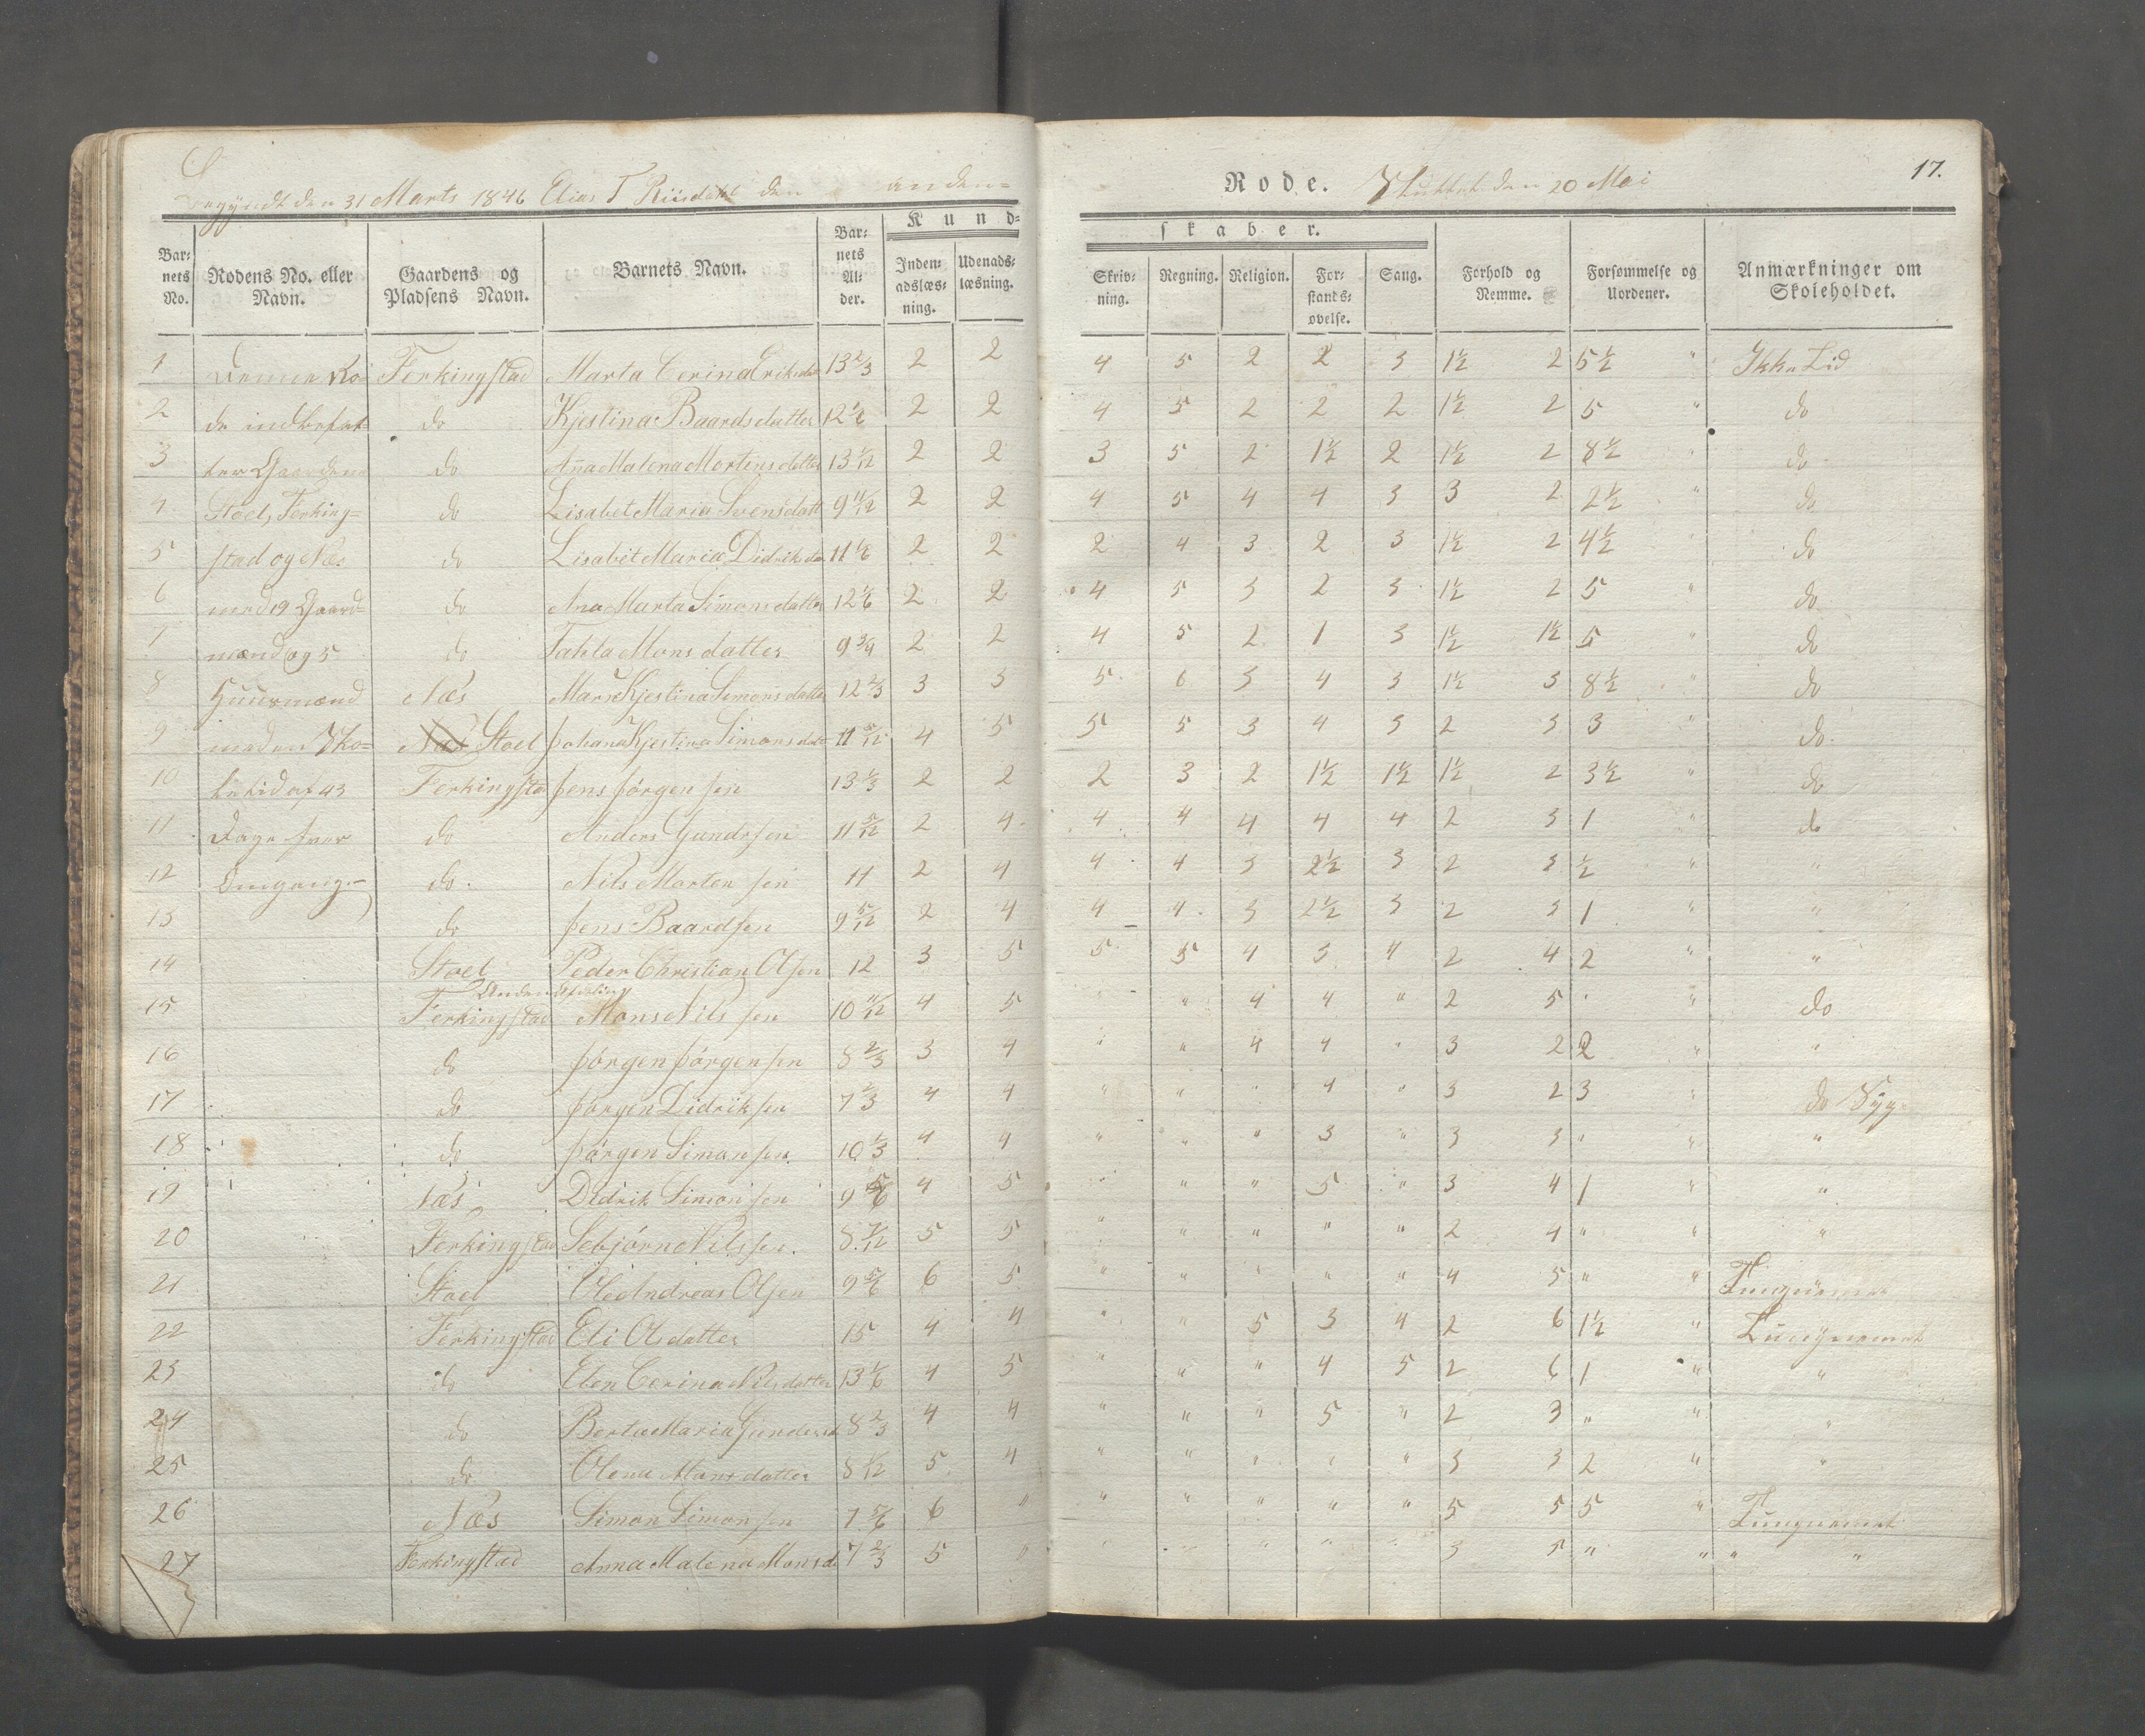 Begyndt den 31 Marts 1846 Elias T Riisdahl den anden= Rode. Sluttet den 20 Mai 17.
Kund= skaber.
Bar= nets No. | Rodens No. eller Navn. | Gaardens og Pladsens Navn. | Barnets Navn. | Bar= nets Al= der. | Inden= adslæs= ning. | Udenads= læsning. | Skriv= ning. | Regning. | Religion. | For= stands= øvelse. | Sang. | Forhold og Nemme. | Forsømmelse og Uordener. | Anmærkninger om Skoleholdet.
1 Denne Ro- Ferkingstad Marta Cerina Eriksdat 13 2/3 2 2 4 5 2 2 3 1½ 2 5½ " Ikke Tid
2 de indbefat= do Kjestina Baardsdatter 12 1/6 2 2 4 5 2 2 2 1½ 2 5 " do
3 ter Gaardene do Anna Malena Mortensdatter 13 1/12 2 2 3 5 2 1½ 2 1½ 2 8½ " do
4 Stoel, Ferking= do Lisabet Maria Svensdatt 9 11/12 2 2 4 5 4 4 3 3 2 2½ " do
5 stad og Næs do Lisabet Maria Didriksda 11 1/6 2 2 2 4 3 2 3 1½ 2 4½ do
6 med 19 Gaard= do Ana Marta Simonsdatte 12 1/6 2 2 4 5 3 2 3 1½ 2 5 " do
7 mænd og 5 do Tahla Monsdatter 9 3/4 2 2 4 5 2 1 3 1½ 1½ 5 " do
8 Huusmænd Næs Mari Kjestina Simonsdatte 12 2/3 3 3 5 6 3 4 3 1½ 3 8½ " do
9 med en Sko= Næs Stoel Johana Kjestina Simonsdat 11 5/12 4 5 5 5 3 4 3 2 3 3 " do
10 letid af 43 Ferkingsta Jens Jörgensen 13 1/3 2 2 2 3 2 1½ 1½ 1½ 2 3½ " do
11 Dage hver do Anders Gundersen 11 5/12 2 4 4 4 4 4 4 2 3 1 " do
12 Omgang.- do Nils Mortensen 11 2 4 4 4 3 2½ 3 2 3 ½ " "
13 do Jens Baardsen 9 5/12 2 4 4 4 3 2½ 3 2 3 1 " "
14 Stoel Peder Christian Olsen 12 3 5 5 5 4 3 4 2 4 2 " "
Anden Afdeling
15 Ferkingstad Mons Nilssen 10 11/12 4 5 " " 4 4 " 2 5 " " do
16 do Jörgen Jörgensen 8 2/3 3 4 " " 4 4 " 3 2 2 " "
17 do Jörgen Didriksen 7 1/3 4 4 " " " 4 " 3 2 3 " do Syg
18 do Jörgen Simonsen 10 1/3 4 4 " " " 3 " 3 3 " " "
19 Næs Didrik Simonsen 9 5/6 4 5 " " " 5 " 3 4 1 " "
20 Ferkingstad Sebjörn Nilssen 8 7/12 5 5 " " " " " 2 4 " " "
21 Stoel Ole Andreas Olsen 9 5/6 6 5 " " " " " 4 5 " "
22 Ferkingstad Eli Olsdatter 15 4 4 " " 5 3 4 2 6 1½ " Tungnemmet
23 do Elen Cerina Nilsdatter 13 1/6 4 5 " " " 4 5 2 6 1 " "
24 do Berta Maria Gundersd 8 2/3 4 4 " " " 5 " 2 3 " " "
25 do Olena Monsdatter 8 1/12 5 4 " " " " " 3 3 2 " "
26 Næs Simon Simonsen 7 5/6 6 " " " " " " 5 5 5 " Tungnemmet
27 Ferkingstad Anna Malena Monsd 7 2/3 5 " " " " " " 3 5 " " " "